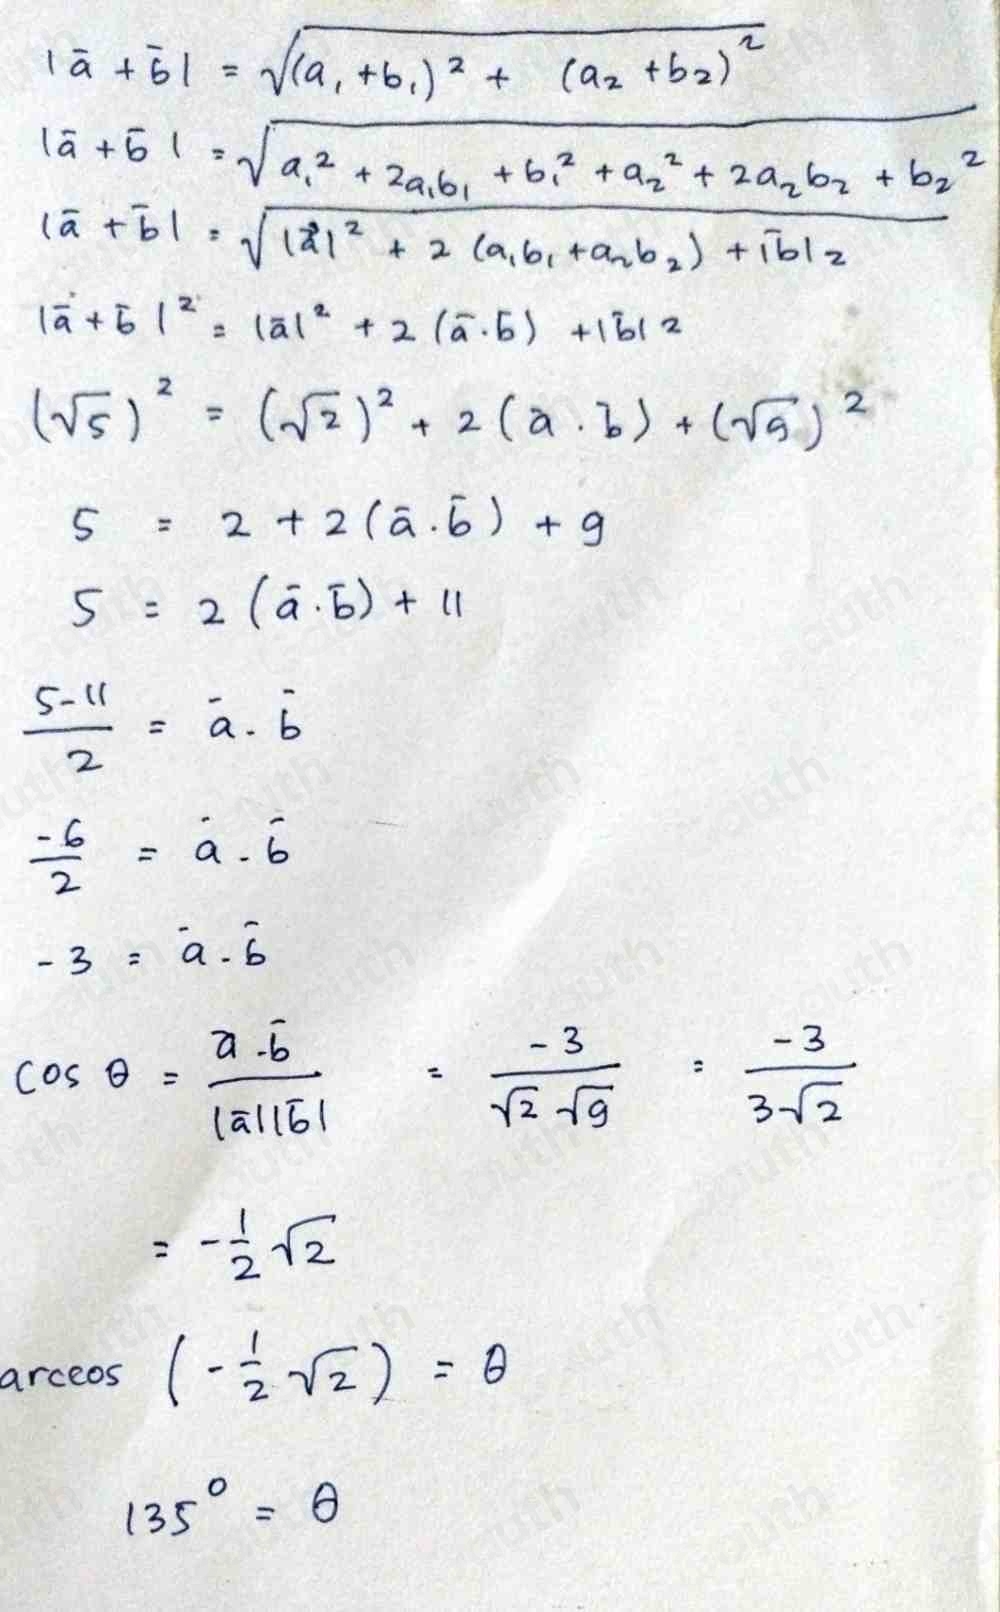 |ā + b̄| = √((a₁ + b₁)² + (a₂ + b₂)²)
|ā + b̄| = √(a₁² + 2a₁b₁ + b₁² + a₂² + 2a₂b₂ + b₂²)
|ā + b̄| = √(|ā|² + 2 (a₁b₁ + a₂b₂) + |b̄|2)
|ā + b̄|² = |ā|² + 2 (ā · b̄) + |b̄|2
(√5)² = (√2)² + 2 (ā · b̄) + (√9)²
5 = 2 + 2 (ā · b̄) + 9
5 = 2 (ā · b̄) + 11
(5-11)/2 = ā · b̄
-6/2 = ā · b̄
-3 = ā · b̄
cos θ = (ā · b̄)/(|ā||b̄|) = -3/(√2 √9) = -3/(3√2)
= -1/2 √2
arccos (-1/2 √2) = θ
135° = θ